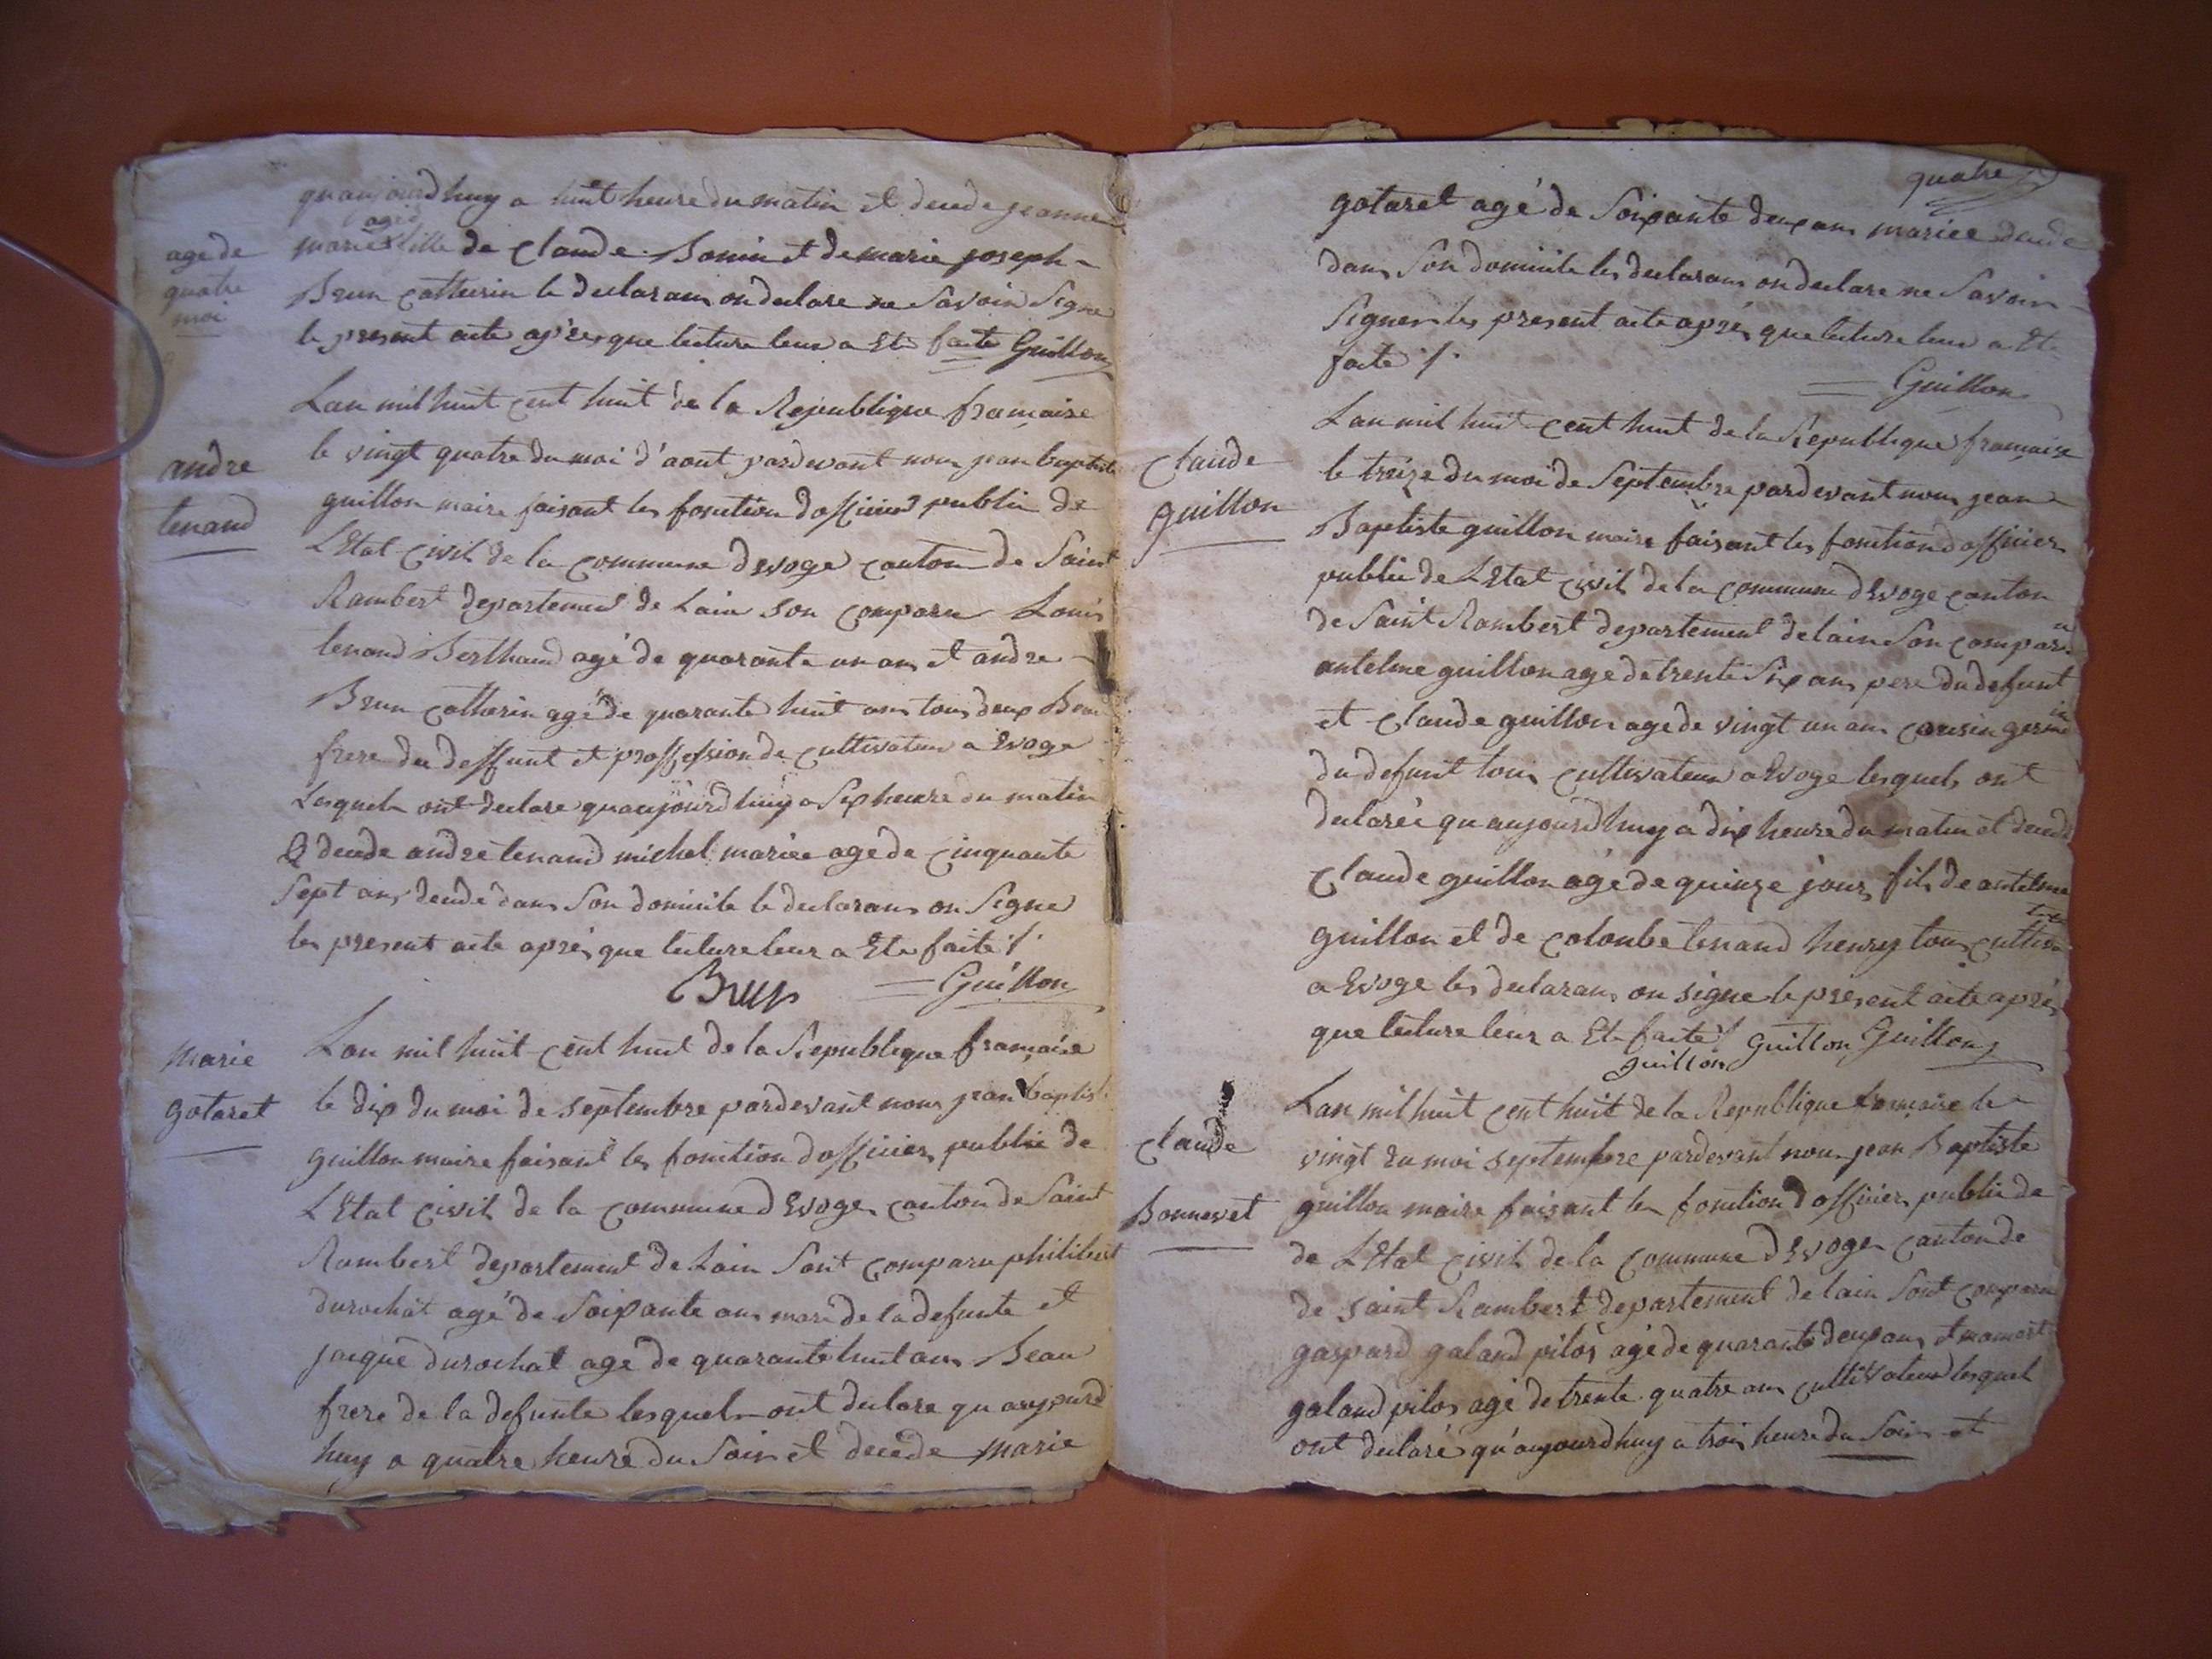 quaujourdhuy a huit heure du matin et decede jeanne
age de
quatre
moi
agee
marie fille de Claude Bonin et de marie joseph
Brun Catherin le declarans on declare ne Savoir Signe
le present acte apres que lecture leur a Ete faite Guillon
Lan mil huit cent huit de la Republique francaise
andre
tenand
le vingt quatre du moi d'aout pardevant nous jean baptiste
guillon maire faisant les fonction dofficier public de
LEtat Civil de la commune devoge canton de Saint
Rambert departement de Lain son comparu Louis
tenand Berthand agé de quarante un ans et andre
Brun Catherin agé de quarante huit ans tous deux Beau
frere du deffunt et proffession de cultivateur a Evoge
Lesquels ont declare quaujourdhuy a Six heure du matin
decede andre tenand michel mariee age de cinquante
Sept ans decede dans Son domicile le declarans on Signe
les present acte aprés que lecture leur a Ete faite
Brun Guillon
marie
gotaret
Lan mil huit cent huit de la Republique francaise
le dix du moi de septembre pardevant nous jean baptist
guillon maire faisant les fonction dofficier public de
LEtat Civil de la commune dEvoges canton de Saint
Rambert departement de Lain Sont comparu philibert
durochat agé de Soixante ans mari de la defunte et
jacque durochat age de quarante huit ans Beau
frere de la defunte lesquels ont declare quaujourd
huy a quatre heure du Soir et decede marie
quatre
gotaret agé de Soixante deux ans mariee decede
dans Son domicile les declarans on declare ne Savoir
Signer les present acte aprés que lecture leur a Ete
faite
Guillon
Claude
guillon
Lan mil huit cent huit de la Republique francaise
le treize du moi de Septembre pardevant nous jean
Baptiste guillon maire faisant les fonction dofficier
public de LEtat Civil de la commune dEvoge canton
de Saint Rambert departement de lain Son comparu
antelme guillon age de trente Six ans pere du defunt
et Claude guillon age de vingt un ans cousin germain
du defunt tous cultivateur a Evoge lesquels ont
declareé quaujourdhuy a dix heure du matin et decede
Claude guillon agé de quinze jours fils de antelme
guillon et de colombe tenand henry tous cultiva teur
a Evoge les declarans on signe le present acte aprés
que lecture leur a Ete faite
guillon Guillon Guillon
Claude
Bonnevet
Lan mil huit cent huit de la Republique francaise le
vingt du moi septembre pardevant nous jean Baptiste
guillon maire faisant les fonction dofficier public de
de LEtat Civil de la commune dEvoges canton de
de saint Rambert departement de lain Sont comparu
gaspard galand pilos agé de quarante deux ans et
galand pilos agé de trente quatre ans cultivateur lesquel
ont declaré qu'aujourdhuy a trois heure du Soir et